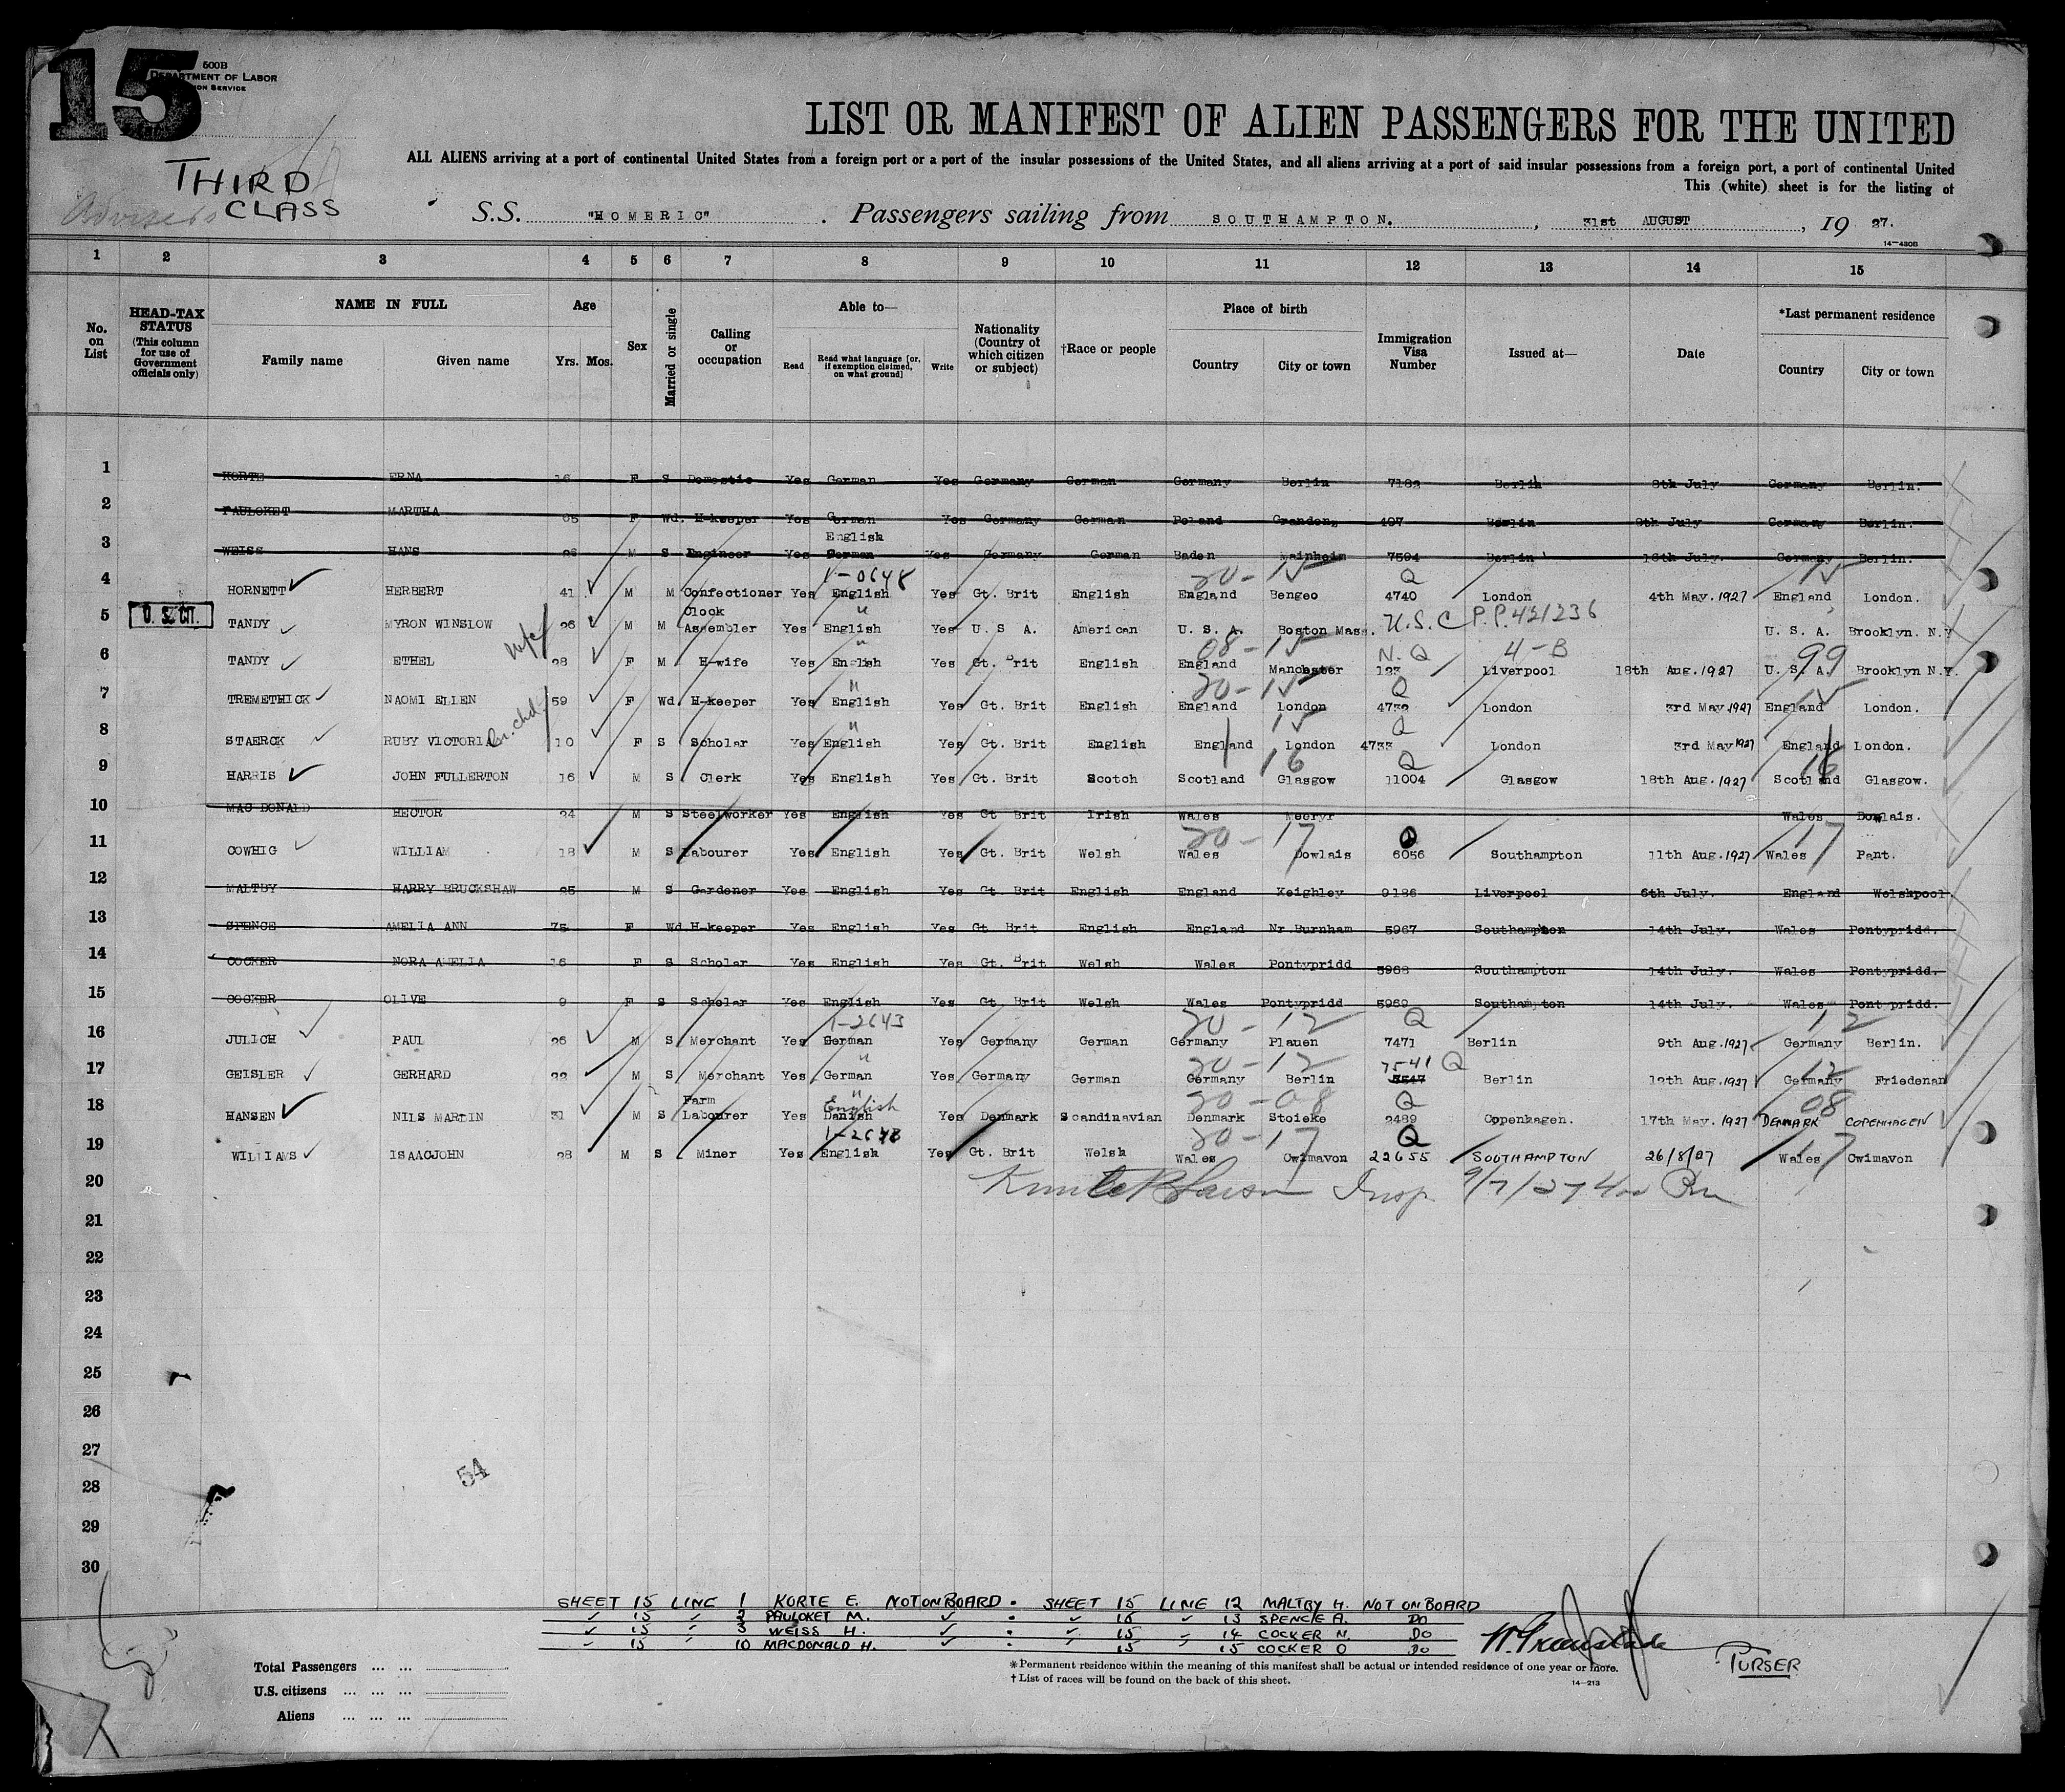 15
500B
DEPARTMENT OF LABOR
ON SERVICE
LIST OR MANIFEST OF ALIEN PASSENGERS FOR THE UNITED
ALL ALIENS arriving at a port of continental United States from a foreign port or a port of the insular possessions of the United States, and all aliens arriving at a port of said insular possessions from a foreign port, a port of continental United
This (white) sheet is for the listing of
THIRD
CLASS
S.S. "HOMERIC". Passengers sailing from SOUTHAMPTON., 31st AUGUST, 19 27.
14—430B
1 2 3 4 5 6 7 8 9 10 11 12 13 14 15
No. on List
HEAD-TAX STATUS (This column for use of Government officials only)
NAME IN FULL
Family name Given name
Age
Yrs. Mos.
Sex
Married or single
Calling or occupation
Able to—
Read
Read what language [or, if exemption claimed, on what ground]
Write
Nationality (Country of which citizen or subject)
†Race or people
Place of birth
Country City or town
Immigration Visa Number
Issued at—
Date
*Last permanent residence
Country City or town
1 KORTE ERNA 16 F S Domestic Yes German Yes Germany German Germany Berlin 7182 Berlin 8th July Germany Berlin.
2 PAULOKET MARTHA 65 F Wd. H-keeper Yes German Yes Germany German Poland Grandenz 407 Berlin 9th July Germany Berlin.
3 WEISS HANS 26 M S Engineer Yes English German Yes Germany German Baden Mainheim 7504 Berlin 18th July. Germany Berlin.
1-0648 20-15 Q 15
4 HORNETT HERBERT 41 M M Confectioner Yes English Yes Gt. Brit English England Bengeo 4740 London 4th May. 1927 England London.
5 U. S. CIT. TANDY MYRON WINSLOW 26 M M Clock Assembler Yes English " Yes U. S A. American U. S. A. Boston Mass. U.S.C P.P. 421236 U. S. A. Brooklyn. N.Y
08-15 N.Q 4-B 99
6 TANDY ETHEL wife 28 F M H-wife Yes English " Yes Gt. Brit English England Manchester 123 Liverpool 18th Aug. 1927 U. S. A. Brooklyn N.Y.
20-15 Q 15
7 TREMETHICK NAOMI ELLEN 59 F Wd. H-keeper Yes English " Yes Gt. Brit English England London 4732 London 3rd May 1927 England London.
15 Q
8 STAERCK RUBY VICTORIA Gr. chd 10 F S Scholar Yes English " Yes Gt. Brit English England London 4733 London 3rd May 1927 England London.
16 Q 16
9 HARRIS JOHN FULLERTON 16 M S Clerk Yes English Yes Gt. Brit Scotch Scotland Glasgow 11004 Glasgow 18th Aug. 1927 Scotland Glasgow.
10 MAC DONALD HECTOR 24 M S Steelworker Yes English Yes Gt Brit Irish Wales Wales Dowlais.
20-17 Q 17
11 COWHIG WILLIAM 18 M S Labourer Yes English Yes Gt. Brit Welsh Wales Dowlais 6056 Southampton 11th Aug. 1927 Wales Pant.
12 MALTBY HARRY BRUCKSHAW 25 M S Gardener Yes English Yes Gt. Brit English England Keighley 9186 Liverpool 6th July. England Welshpool.
13 SPENCE AMELIA ANN 75 F Wd H-keeper Yes English Yes Gt. Brit English England Nr. Burnham 5967 Southampton 14th July. Wales Pontypridd.
14 COCKER NORA AMELIA 16 F S Scholar Yes English Yes Gt. Brit Welsh Wales Pontypridd 5968 Southampton 14th July. Wales Pontypridd.
15 COCKER OLIVE 9 F S Scholar Yes English Yes Gt. Brit Welsh Wales Pontypridd 5969 Southampton 14th July. Wales Pontypridd.
1-2643 20-12 Q 12
16 JULICH PAUL 26 M S Merchant Yes German Yes Germany German Germany Plauen 7471 Berlin 9th Aug. 1927 Germany Berlin.
20-12 7541 Q 12
17 GEISLER GERHARD 22 M S Merchant Yes German " Yes Germany German Germany Berlin 7547 Berlin 12th Aug. 1927 Germany Friedenan
20-08 Q 08
18 HANSEN NILS MARTIN 31 M S Farm Labourer Yes English Danish " Yes Denmark Scandinavian Denmark Stoieke 2489 Copenhagen. 17th May. 1927 DENMARK COPENHAGEN
1-2643 20-17 Q 17
19 WILLIAMS ISAACJOHN 28 M S Miner Yes English Yes Gt. Brit Welsh Wales Cwimavon 22655 SOUTHAMPTON 26/8/27 Wales Cwimavon
20 Insp. 9/7/27 400 Pm
21
22
23
24
25
26
27
28
29
30
54
SHEET 15 LINE 1 KORTE E. NOT ON BOARD. SHEET 15 LINE 12 MALTBY H. NOT ON BOARD
15 2 PAULOKET M. 15 13 SPENCE A. DO
15 3 WEISS H. 15 14 COCKER N. DO
15 10 MACDONALD H. 15 15 COCKER O DO
PURSER
Total Passengers ... ...
U.S. citizens ... ... ...
Aliens ... ... ...
*Permanent residence within the meaning of this manifest shall be actual or intended residence of one year or more.
†List of races will be found on the back of this sheet.
14—213